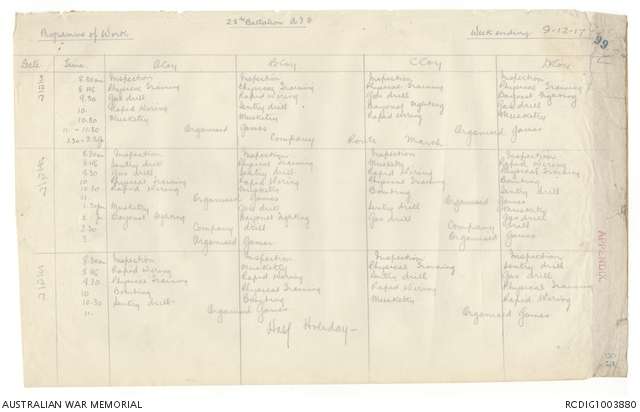 28th Battalion A I F
Programme of Work
Week ending 9-12-17
99
Date Time A Coy B Coy C Coy D Coy
8.30am Inspection Inspection Inspection Inspection
8.45 Physical Training Physical Training Physical Training Physical Training
9.30 Gas drill Rapid Wiring Gas drill Bayonet Fighting
10. Rapid Wiring Sentry drill Bayonet Fighting Gas drill
10.30 Musketry Musketry Rapid Wiring Musketry
11 - 11.30 Organised Games Organised Games
Company Route March
8.30am Inspection Inspection Inspection Inspection
8.45 Sentry drill Physical Training Musketry Rapid Wiring
9.30 Gas drill Sentry drill Rapid Wiring Physical Training
10 Physical Training Rapid Wiring Physical Training Bombing
10.30 Rapid Wiring Musketry Bombing Sentry drill
11. Organised Games Organised Games
1.30pm Musketry Gas drill Sentry drill Musketry
2. Bayonet Fighting Bayonet Fighting Gas drill Gas drill
2.30 Company drill Company drill
3. Organised Games Organised Games
8.30am Inspection Inspection Inspection Inspection
8.45 Rapid Wiring Musketry Physical Training Sentry drill
9.30 Physical Training Rapid Wiring Sentry drill Gas drill
10 Bombing Physical Training Rapid Wiring Physical Training
10.30 Sentry drill Bombing Musketry Rapid Wiring
11. Organised Games Organised Games
Half Holiday
APPENDIX
AUSTRALIAN WAR MEMORIAL
RCDIG1003880